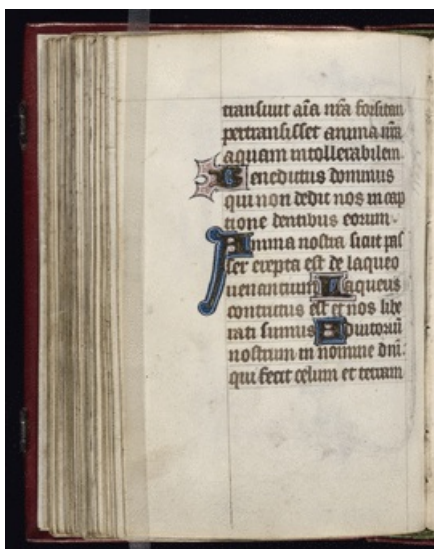 transiuit aīa nrā forsitan
pertransisset anima nrā
aquam intollerabilem.
Benedictus dominus
qui non dedit nos in cap
tione dentibus eorum.
Anima nostra sicut pas
ser erepta est de laqueo
uenantium Laqueus
contritus est et nos libe
rati sumus Adiutoriū
nostrum in nomine dnī:
qui fecit celum et terram